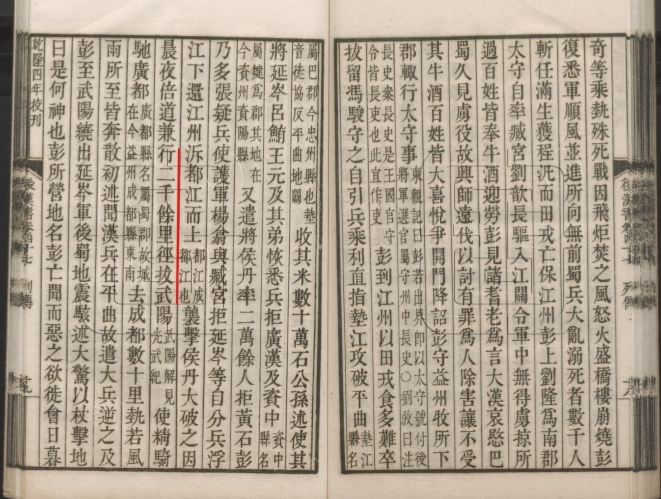 奇等乘埶殊死戰因飛炬焚之風怒火盛橋樓崩燒彭
復悉軍順風並進所向無前蜀兵大亂溺死者數千人
斬任滿生獲程汎而田戎亡保江州彭上劉隆爲南郡
太守自率臧宮劉歆長驅入江關令軍中無得虜掠所
過百姓皆奉牛酒迎勞彭見諸耆老爲言大漢哀愍巴
蜀久見虜役故興師遠伐以討有罪爲人除害讓不受
其牛酒百姓皆大喜悅爭開門降詔彭守益州牧所下
郡輒行太守事東觀記曰彭若出界卽以太守號付後將軍選官屬守州中長史○劉攽曰注
長史案長史是王國官守令皆長吏也此宜作吏彭到江州以田戎食多難卒
拔留馮駿守之自引兵乘利直指墊江攻破平曲墊江縣名
後漢書卷四十七 列傳
屬巴郡今忠州縣也墊音徒協反平曲地闕收其米數十萬石公孫述使其
將延岑呂鮪王元及其弟恢悉兵拒廣漢及資中資中縣名
屬犍爲郡其地在今資州資陽縣又遣將侯丹率二萬餘人拒黃石彭
乃多張疑兵使護軍楊翕與臧宮拒延岑等自分兵浮
江下還江州泝都江而上都江成都江也襲擊侯丹大破之因
晨夜倍道兼行二千餘里徑拔武陽武陽解見光武紀使精騎
馳廣都廣都縣名屬蜀郡故城在今益州成都縣東南去成都數十里埶若風
雨所至皆奔散初述聞漢兵在平曲故遣大兵逆之及
彭至武陽繞出延岑軍後蜀地震駭述大驚以杖擊地
曰是何神也彭所營地名彭亡聞而惡之欲徙會日暮
乾隆四年校刊
後漢書卷四十七 列傳